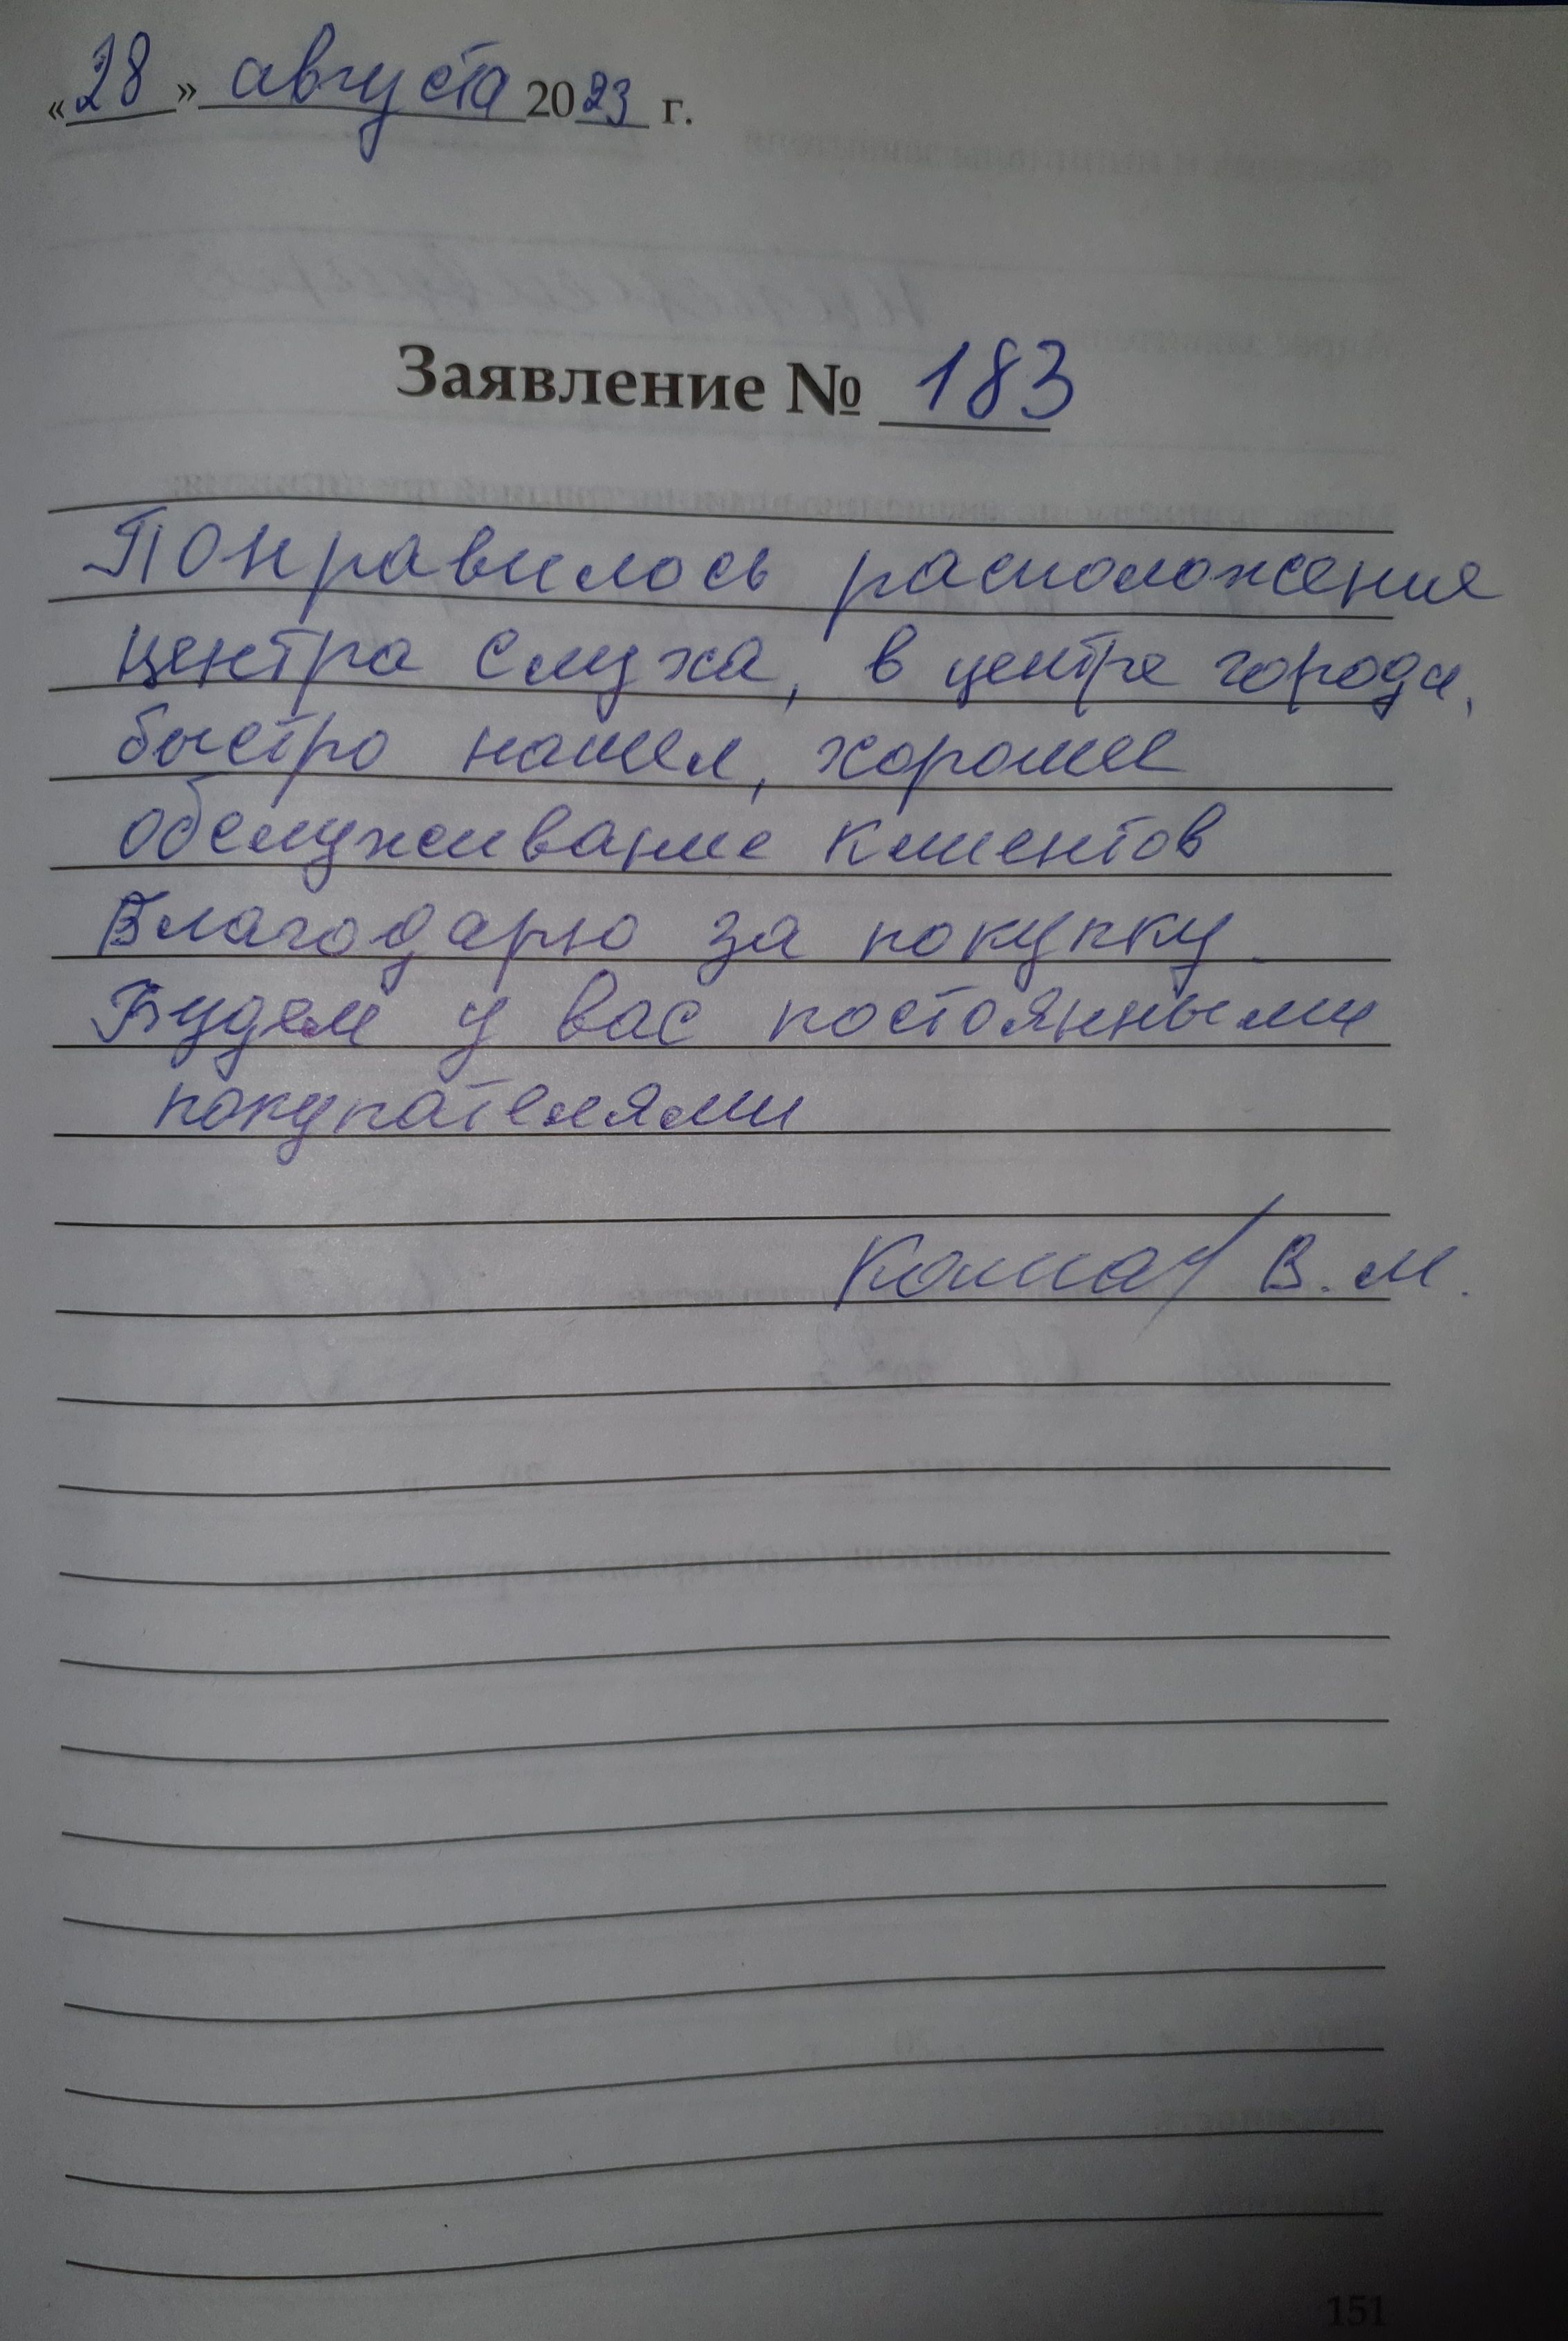 «28» августа 2023 г.
Заявление № 183
Понравилось расположение
центра слуха, в центре города,
быстро нашел, хорошее
обслуживание клиентов
Благодарю за покупку.
Будем у вас постоянными
покупателями
В. М.
151